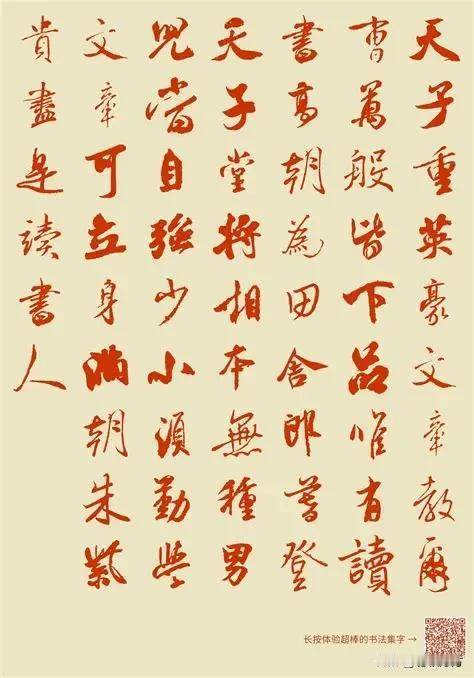 天子重英豪文章教爾
曹萬般皆下品唯有讀
書高朝為田舍郎暮登
天子堂將相本無種男
兒當自強少小須勤學
文章可立身滿朝朱紫
貴盡是讀書人
长按体验超棒的书法集字 →